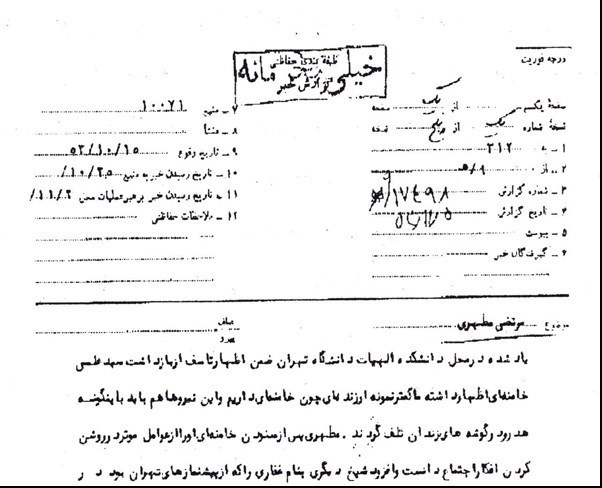 درجه فوریت
طبقه بندی حفاظتی
خیلی محرمانه
گزارش خبر
صفحهٔ یکم از یک صفحه
نسخهٔ شماره یک از پنج نسخه
۱ ـ به ۳۱۲
۲ ـ از ۵/۹
۳ ـ شماره گزارش ۱۷۴۹۸/
۴ ـ تاریخ گزارش
۵ ـ پیوست
۶ ـ گیرندگان خبر
۷ ـ منبع ۱۰۰۷۱
۸ ـ منشأ
۹ ـ تاریخ وقوع ۵۳/۱۰/۱۵
۱۰ ـ تاریخ رسیدن خبر به منبع ۲۵/۱۰/
۱۱ ـ تاریخ رسیدن خبر به رهبر عملیات ۲/۱۱/
۱۲ ـ ملاحظات حفاظتی
موضوع مرتضی مطهری
پیرو
یاد شده در محل دانشکده الهیات دانشگاه تهران ضمن اظهار تاسف از بازداشت سید علی
خامنه‌ای اظهار داشته ما کمتر نمونه ارزنده‌ای چون خامنه‌ای داریم و این نیروها هم باید باینگونه
هدر رود و گوشه های زندان تلف گردند . مطهری پس از ستودن خامنه‌ای او را از عوامل موثر در روشن
کردن افکار اجتماع دانست و افزود شیخ دیگری بنام غفاری را که از پیشنمازهای تهران بود در